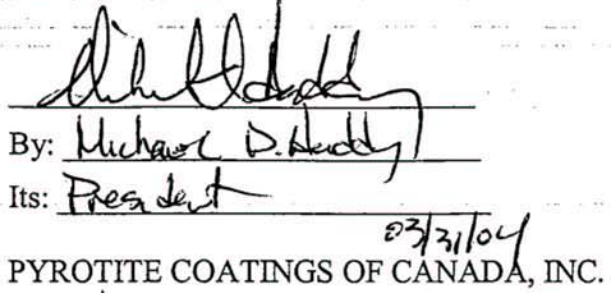 By: Michael D. Huddy
Its: President
03/31/04
PYROTITE COATINGS OF CANADA, INC.